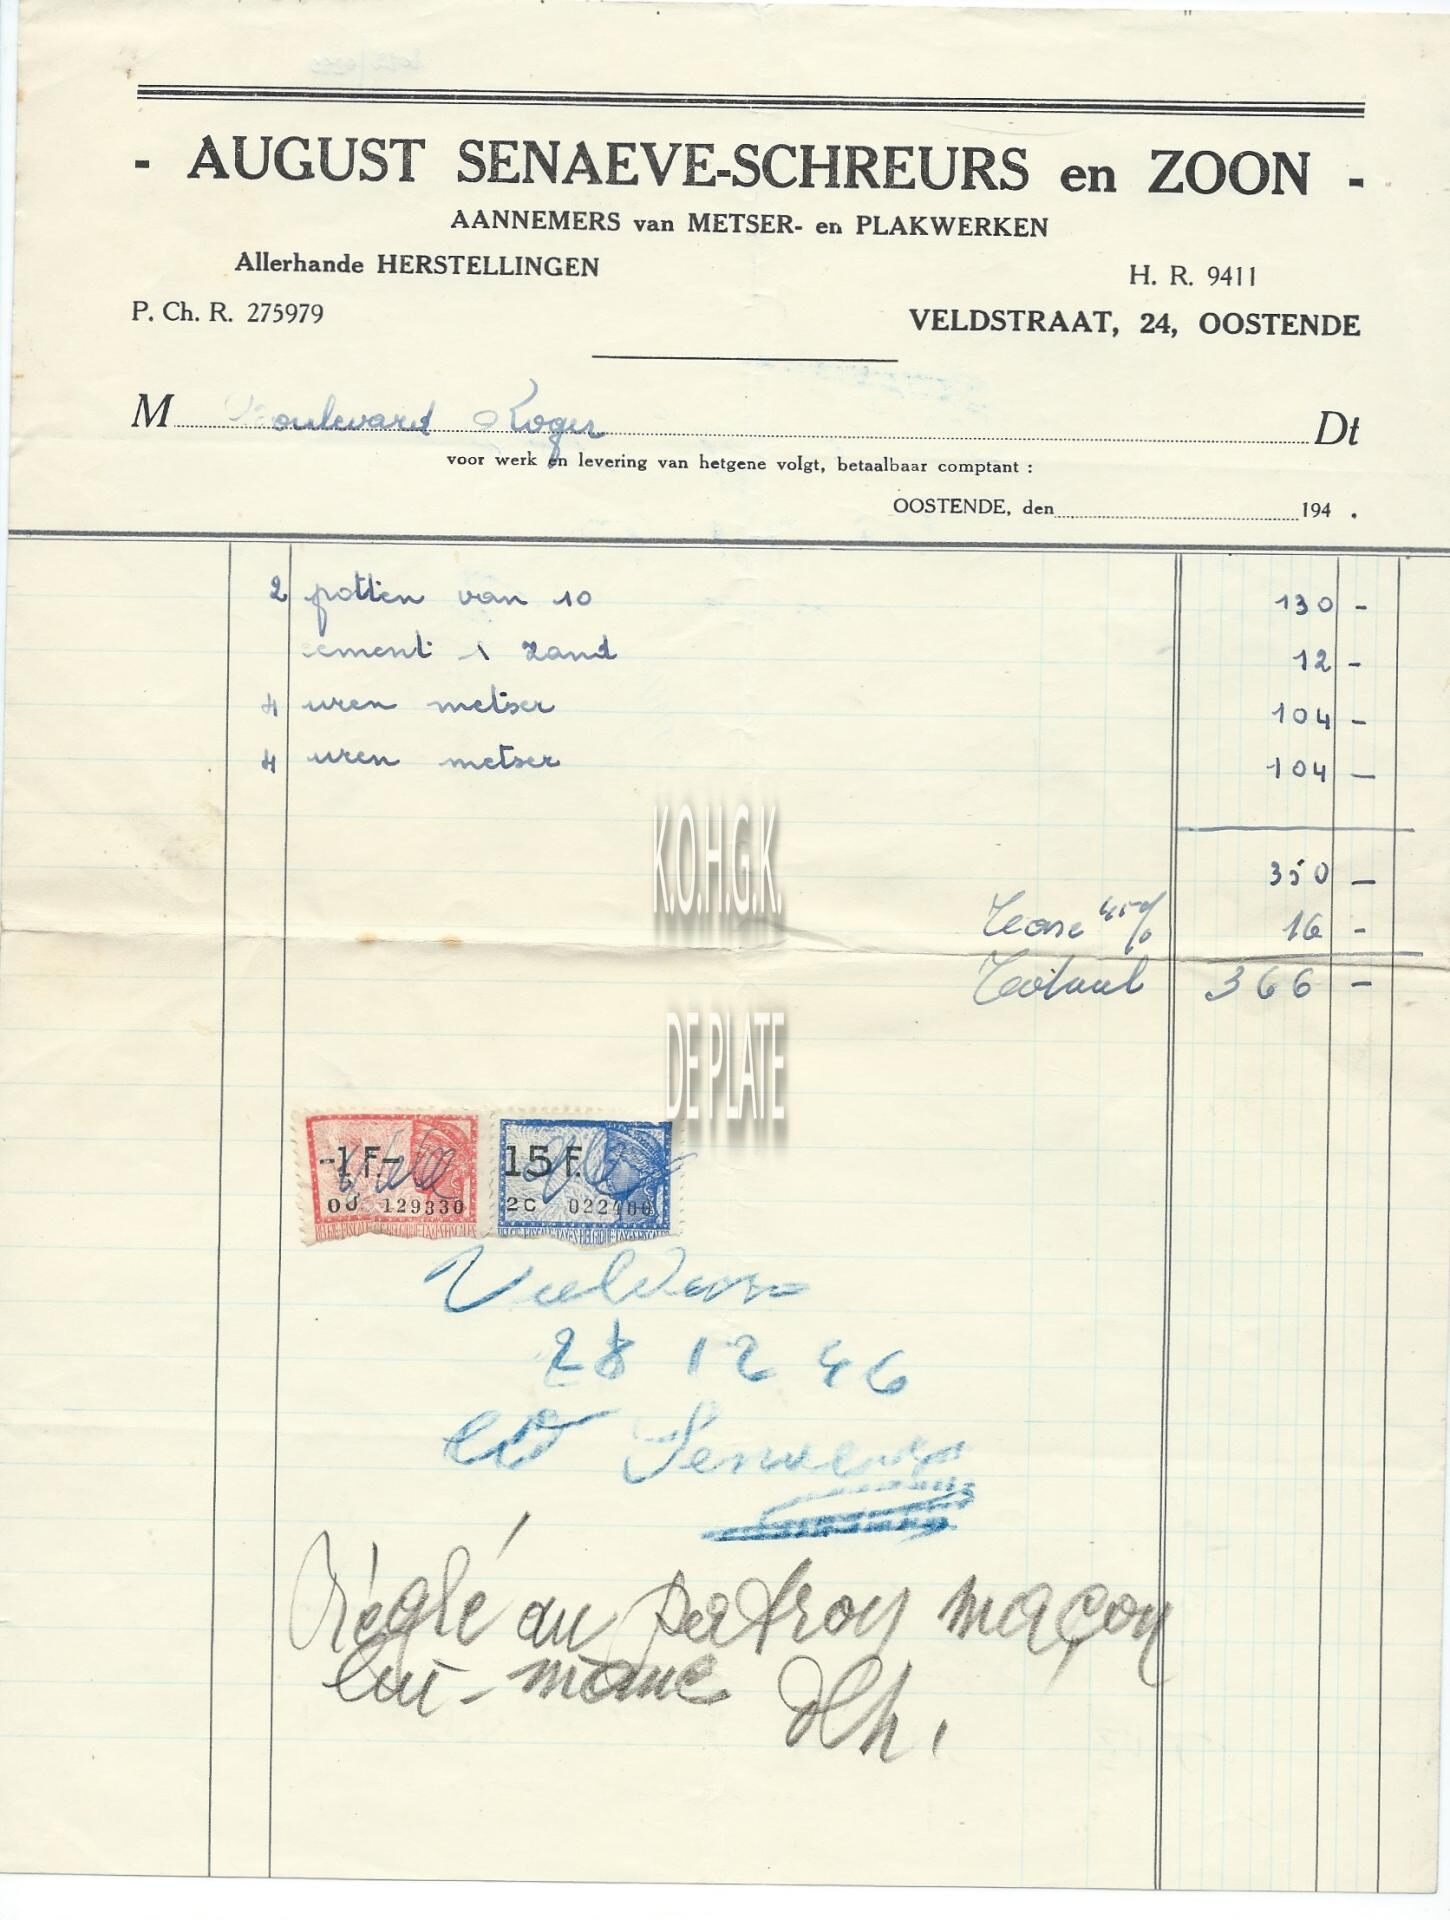 - AUGUST SENAEVE-SCHREURS en ZOON -
AANNEMERS van METSER- en PLAKWERKEN
Allerhande HERSTELLINGEN
H. R. 9411
P. Ch. R. 275979
VELDSTRAAT, 24, OOSTENDE
M Boulevard Roger Dt
voor werk en levering van hetgene volgt, betaalbaar comptant :
OOSTENDE, den 194 .
2 potten van 10 130 -
cement & zand 12 -
4 uren metser 104 -
4 uren metser 104 -
350 -
Taxe 4,5% 16 -
Totaal 366 -
K.O.H.G.K.
DE PLATE
-1 F- 15 F.
OJ 129330 2C 022400
Voldaan
28 12 46
Senaeve
Réglé au patron maçon
lui-même